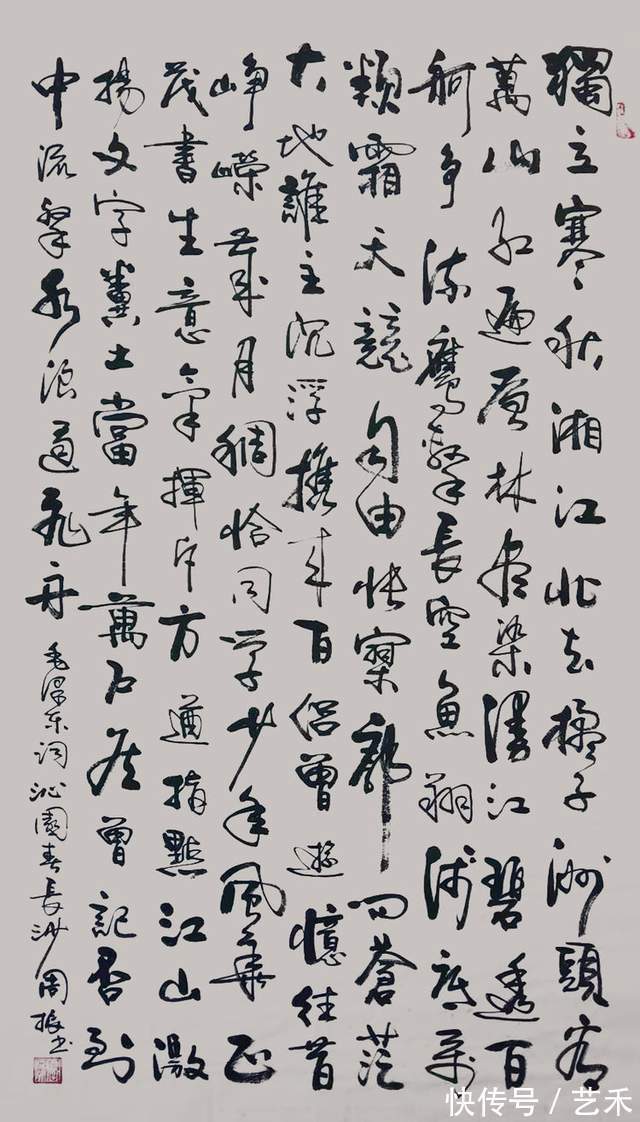 獨立寒秋湘江北去橘子洲頭看
萬山紅遍層林盡染漫江碧透百
舸爭流鷹擊長空魚翔淺底萬
類霜天競自由悵寥廓問蒼茫
大地誰主沉浮攜來百侶曾遊憶往昔
崢嶸歲月稠恰同學少年風華正
茂書生意氣揮斥方遒指點江山激
揚文字糞土當年萬戶侯曾記否到
中流擊水浪遏飛舟
毛澤東词沁園春長沙周振书
快传号 / 艺禾